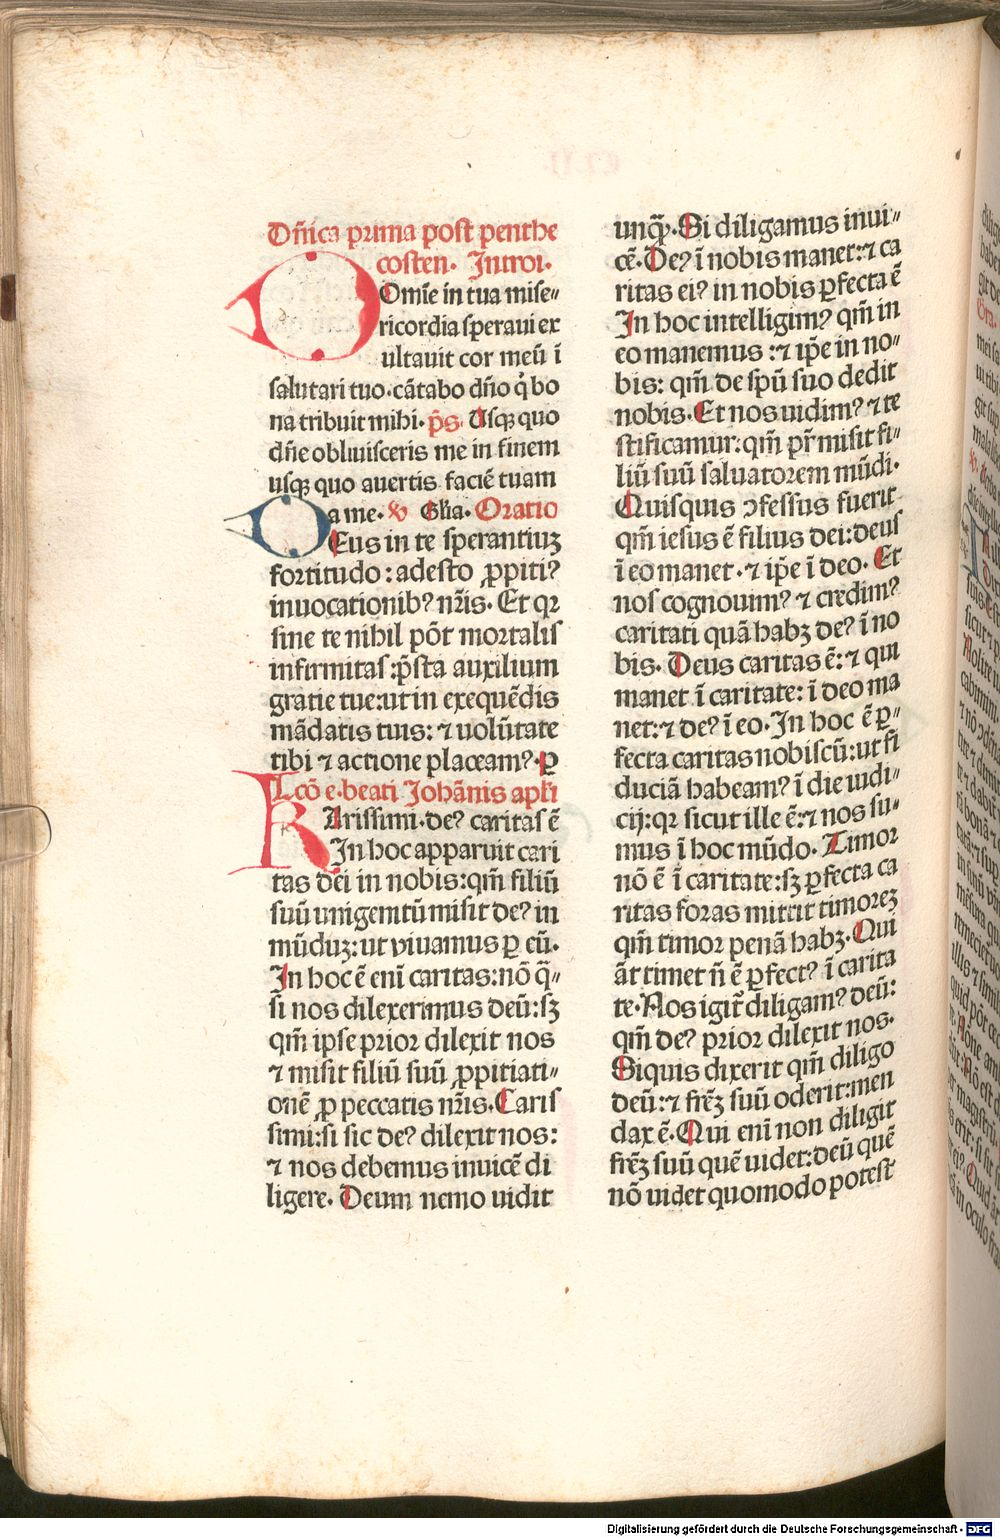 Dñica prima post penthe
costen. Introi.
DOmīe in tua mise⸗
ricordia speraui ex
ultauit cor meū ī
salutari tuo.cātabo dño q̇ bo
na tribuit mihi. p̄s. Usqꝫ quo
dñe obliuisceris me in finem
usqꝫ quo auertis faciē tuam
a me. ꝟ Glīa. Oratio
DEus in te sperantiuꝫ
fortitudo: adesto ꝓpitiꝰ
inuocationibꝰ nr̄is. Et qꝛ
sine te nihil pōt mortalis
infirmitas: p̄sta auxilium
gratie tue:ut in exequēdis
mādatis tuis: ⁊ uolūtate
tibi ⁊ actione placeamꝰ. ꝑ
Lcō e. beati Johānis apłi
KArissimi. deꝰ caritas ē
In hoc apparuit cari
tas dei in nobis: qm̄ filiū
suū unigenitū misit deꝰ in
mūduꝫ: ut viuamus ꝑ eū.
In hoc ē enī caritas: nō q̄⸗
si nos dilexerimus deū: sꝫ
qm̄ ipse prior dilexit nos
⁊ misit filiū suū ꝓpitiati⸗
onē ꝓ peccatis nr̄is. Caris
simi: si sic deꝰ dilexit nos:
⁊ nos debemus inuicē di
ligere. Deum nemo uidit
unq̄ꝫ. Si diligamus inui⸗
cē. Deꝰ ī nobis manet: ⁊ ca
ritas eiꝰ in nobis ꝑfecta ē
In hoc intelligimꝰ qm̄ in
eo manemus: ⁊ ip̄e in no⸗
bis: qm̄ de spū suo dedit
nobis. Et nos uidimꝰ ⁊ te
stificamur: qm̄ pr̄ misit fi⸗
liū suū saluatorem mūdi.
Quisquis ↄfessus fuerit
qm̄ iesus ē filius dei: deus
ī eo manet. ⁊ ip̄e ī deo. Et
nos cognouimꝰ ⁊ credimꝰ
caritati quā habꝫ deꝰ ī no
bis. Deus caritas ē: ⁊ qui
manet ī caritate: ī deo ma
net: ⁊ deꝰ ī eo. In hoc ē ꝑ⸗
fecta caritas nobiscū: ut fi
duciā habeamꝰ ī die iudi⸗
cij: qꝛ sicut ille ē: ⁊ nos su⸗
mus ī hoc mūdo. Timor
nō ē ī caritate: sꝫ ꝑfecta ca
ritas foras mittit timoreꝫ
qm̄ timor penā habꝫ. Qui
āt timet ñ ē ꝑfectꝰ ī carita
te. Nos igit̄ diligamꝰ deū:
qm̄ deꝰ prior dilexit nos.
Siquis dixerit qm̄ diligo
deū: ⁊ frēꝫ suū oderit: men
dax ē. Qui enī non diligit
frēꝫ suū quē uidet: deū quē
nō uidet quomodo potest
Digitalisierung gefördert durch die Deutsche Forschungsgemeinschaft - DFG